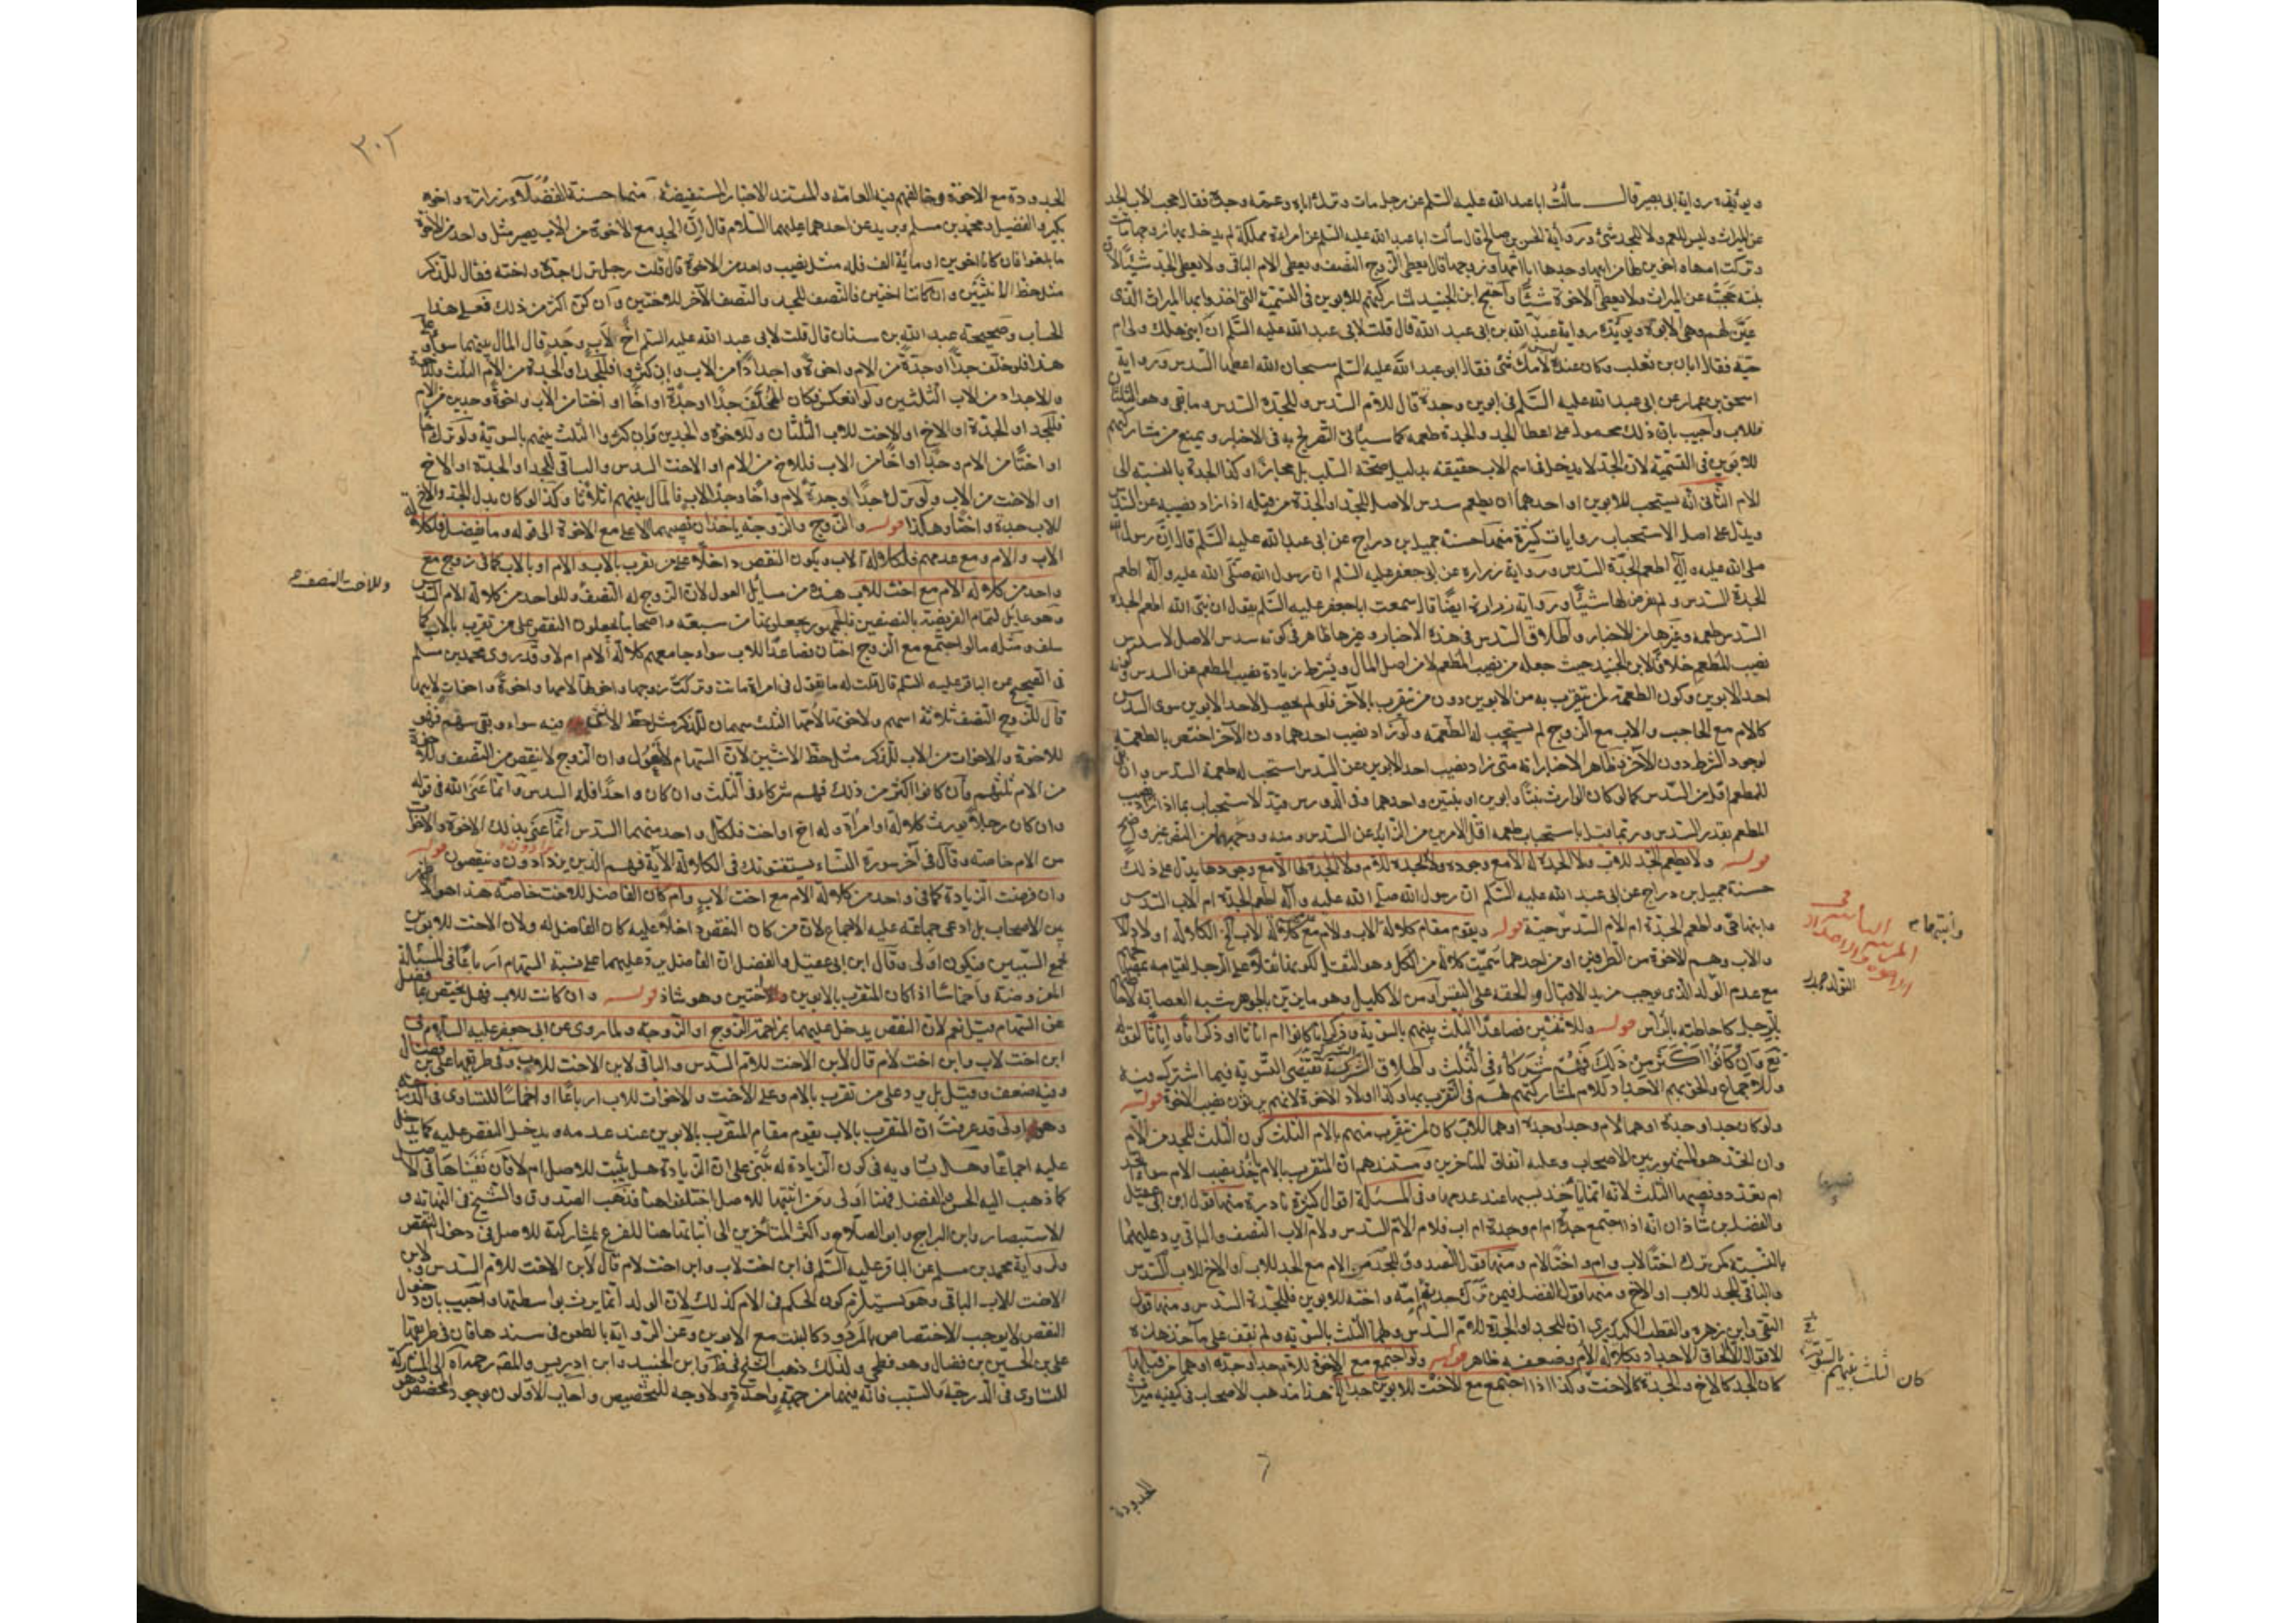 ويؤيده رواية ابي بصير قال سألت ابا عبد الله عليه السلم عن رجل مات وترك اباه وعمه وجده فقال حجب الاب الجد
عن الميراث وليس للعم ولا للجد شئ ورواية الحسن بن صالح قال سألت ابا عبد الله عليه السلم عن امراة مملكة لم يدخل بها زوجها ماتت
وتركت امها واخوين لها من ابيها وجدها ابا امها وزوجها قال يعطى الزوج النصف ويعطى الام الباقى ولا يعطى الجد شيئا لان
بنته حجبته عن الميراث ولا يعطى الاخوة شيئا واحتج ابن الجنيد لمشاركتهم للابوين فى التسمية التى اخذوا بها الميراث الذى
عين لهم وهى الابوة ويؤيده رواية عبد الله بن ابى عبد الله قال قلت لابى عبد الله عليه السلم ان ابنتى هلكت ولى ام
حية فقال ابان بن تغلب وكان عنده ليس لامك شئ فقال ابو عبد الله عليه السلم سبحان الله اعطها السدس ورواية
اسحق بن عمار عن ابى عبد الله عليه السلم فى ابوين وجدة قال للام السدس وللجدة السدس وما بقى وهو الثلثان
للاب واجيب بان ذلك محمول على اعطاء الجد والجدة طعمه كما سيأتى التصريح به فى الاخبار ويمنع من مشاركتهم
للابوين فى التسمية لان الجد لا يدخل فى اسم الاب حقيقة بدليل صحة السلب بل مجازا وكذا الجدة بالنسبة الى
الام الثانى انه يستحب للابوين او احدهما ان يطعم سدس الاصل للجد او الجدة من قبله اذا زاد نصيبه عن السدس
ويدل على اصل الاستحباب روايات كثيرة منها حسنة جميل بن دراج عن ابى عبد الله عليه السلم قال ان رسول الله
صلى الله عليه وآله اطعم الجدة السدس ورواية زرارة عن ابى جعفر عليه السلم ان رسول الله صلى الله عليه وآله اطعم
الجدة السدس ولم يفرض لها شيئا ورواية زرارة ايضا قال سمعت ابا جعفر عليه السلم يقول ان نبى الله اطعم الجدة
السدس طعمه وغيرها من الاخبار واطلاق السدس فى هذه الاخبار وغيرها ظاهر فى كونه سدس الاصل لا سدس
نصيب المطعم خلافا لابن الجنيد حيث جعله من نصيب المطعم لا من اصل المال ويشترط زيادة نصيب المطعم عن السدس وكونه
احد الابوين وكون الطعمة لمن يتقرب به من الابوين دون من يتقرب بالآخر فلو لم يحصل لاحد الابوين سوى السدس
كالام مع الحاجب والاب مع الزوج لم يستحب له الطعمه ولو زاد نصيب احدهما دون الآخر اختص بالطعمة
لوجود الشرط دون الآخر وظاهر الاخبار انه متى زاد نصيب احد الابوين عن السدس استحب له طعمة السدس وان
للمطعم اقل من السدس كما لو كان الوارث بنتا وابوين او بنتين واحدهما وفى الدروس قيد الاستحباب بما اذا زاد نصيب
المطعم بقدر السدس وربما قيل باستحباب طعمه اقل الامرين من الزائد عن السدس ومنه
قوله ولا يطعم الجد للاب ولا الجدة له الا مع وجوده ولا الجد للام ولا الجدة لها الا مع وجودها يدل على ذلك
حسنة جميل بن دراج عن ابى عبد الله عليه السلم ان رسول الله صلى الله عليه وآله اطعم الجدة ام الاب السدس
وابنها حى واطعم الجدة ام الام السدس حية قوله ويقوم مقام كلالة الاب والام مع عدمهم كلالة الاب الخ الكلالة اولاد الاب
والاب وهم الاخوة من الطرفين او من احدهما سميت كلالة من الكل وهو الثقل لكونها ثقلا على الرجل لقيامه بمصالحهم
مع عدم الولد الذى يوجب مزيد الاقبال
بالرجل كاحاطته بالرأس قوله وللاثنين فصاعدا الثلث بينهم بالسوية ذكرانا كانوا ام اناثا او ذكرانا واناثا لقوله
تع وان كانوا اكثر من ذلك فهم شركاء فى الثلث واطلاق الشركة يقتضى التسوية فيما اشترك فيه
وللاجماع والحق بهم الاجداد للام لمشاركتهم لهم فى التقرب بها وكذا اولاد الاخوة لانهم يرثون نصيب الاخوة قوله
ولو كان جدا وجدة او هما لام وجدا وجدة او هما للاب كان لمن تقرب منهم بالام الثلث كون الثلث للجد من الام
وان اتحد هو المشهور بين الاصحاب وعليه اتفاق المتاخرين ومستندهم ان المتقرب بالام ياخذ نصيب الام سواء اتحد
ام تعدد ونصيبها الثلث لانه انما ياخذ بسببها عند عدمها وفى المسئلة اقوال كثيرة نادرة منها قول ابن ابى عقيل
والفضل بن شاذان انه اذا اجتمع جدة ام ام وجدة ام اب فلام الام السدس ولام الاب النصف والباقى يرد عليهما
بالنسبة كمن ترك اختا لاب وام واختا لام ومنها قول الصدوق للجد من الام مع الجد للاب او الاخ للاب السدس
والباقى للجد للاب او الاخ ومنها قول الفضل فيمن ترك جدته ام امه واخته للابوين فللجدة السدس ومنها قول
التقى وابن زهرة والقطب الكيدرى ان للجد او الجدة للام السدس ولهما الثلث بالسوية ولم نقف على مأخذ هذه
الاقوال الا الحاق الاجداد بكلالة الام وضعفه ظاهر قوله ولو اجتمع مع الاخوة للام جد او جدة او هما من قبلها
كان الجد كالاخ والجدة كالاخت وكذا اذا اجتمع مع الاخت للابوين جد الخ هذا مذهب الاصحاب فى كيفية ميراث
وابنتها م
كان الثلث بينهم بالسوية
الجدودة
٣٠٢
الجدودة مع الاخوة وخالفهم فيه العامة والمستند الاخبار المستفيضة منها حسنة الفضلاء زرارة واخوه
بكير والفضيل ومحمد بن مسلم وبريد عن احدهما عليهما السلام قال ان الجد مع الاخوة من الاب يصير مثل واحد من الاخوة
ما بلغوا فان كانا اخوين او مائة الف فله مثل نصيب واحد من الاخوة قال قلت رجل ترك جده واخته فقال للذكر
مثل حظ الانثيين وان كانتا اختين فالنصف للجد والنصف الآخر للاختين وان كن اكثر من ذلك فعلى هذا
الحساب وصحيحة عبد الله بن سنان قال قلت لابى عبد الله عليه السلم اخ لاب وجد قال المال بينهما سواء وعلى
هذا فلو خلف جدا او جدة من الام واخوة واجدادا من الاب وان كثروا فللجد او الجدة من الام الثلث وللاخوة
والاجداد من الاب الثلثين ولو انعكس فكان المخلف جدا او جدة او اخا او اختا من الاب واخوة وجدين من الام
فللجد او الجدة او الاخ او الاخت للاب الثلثان وللاخوة والجدين وان كثروا الثلث بينهم بالسوية ولو ترك اخا
او اختا من الام وجدا او اخا من الاب فللاخ من الام او الاخت السدس والباقى للجد او الجدة او الاخ
او الاخت من الاب ولو ترك جدا وجدة لام واخا وجدا لاب فالمال بينهم اثلاثا وكذا لو كان بدل الجد والاخ
للاب جدة واختا وهكذا قوله والزوج والزوجة ياخذان نصيبهما الاعلى مع الاخوة الى قوله وما يفضل فلكلالة
الاب والام ومع عدمهم فلكلالة الاب ويكون النقص داخلا على من تقرب بالاب والام او بالاب كما فى زوج مع
واحد من كلالة الام مع اخت للاب هذه من مسايل العول لان الزوج له النصف وللواحد من كلالة الام السدس
وللاخت النصف
سلف ومثله ما لو اجتمع مع الزوج اختان فصاعدا للاب سواء جامعهم كلالة الام ام لا وقد روى محمد بن مسلم
فى الصحيح عن الباقر عليه السلم قال قلت له ما تقول فى امراة ماتت وتركت زوجها واخوتها لامها واخوة واخوات لابيها
قال للزوج النصف ثلاثة اسهم ولاخوتها لامها الثلث سهمان للذكر مثل حظ الانثى فيه سواء وبقى سهم فهو
للاخوة والاخوات من الاب للذكر مثل حظ الانثيين لان السهام لا تعول وان الزوج لا ينقص من النصف وللاخوة
من الام ثلثهم وان كانوا اكثر من ذلك فهم شركاء فى الثلث وان كان واحدا فله السدس وانما عنى الله فى قوله
وان كان رجلا يورث كلالة او امرأة وله اخ او اخت فلكل واحد منهما السدس انما عنى بذلك الاخوة والاخوات
من الام خاصة وقال فى آخر سورة النساء يستفتونك فى الكلالة الآية فهم الذين يزدادون وينقصون قوله
وان فرضت الزيادة كما فى واحد من كلالة الام مع اخت لاب وام كان الفاضل للاخت خاصة هذا هو
بين الاصحاب بل ادعى جماعة عليه الاجماع لان من كان النقص داخلا عليه كان الفاضل له ولان الاخت للابوين
تجمع السببين فيكون اولى وقال ابن ابى عقيل والفضل ان الفاضل يرد عليهما على نسبة السهام ارباعا فى المسئلة
المفروضة واخماسا اذا كان المتقرب بالابوين اختين وهو شاذ قوله وان كانت للاب فهل يختص بما فضل
عن السهام قيل نعم لان النقص يدخل عليهما بمزاحمة الزوج او الزوجة ولما روى عن ابى جعفر عليه السلام فى
ابن اخت لاب وابن اخت لام قال لابن الاخت للام السدس والباقى لابن الاخت للاب وفى طريقها على بن فضال
وفيه ضعف وقيل بل يرد على من تقرب بالام وعلى الاخت والاخوات للاب ارباعا او اخماسا للتساوى فى الدرجة
وهو اولى قد عرفت ان المتقرب بالاب يقوم مقام المتقرب بالابوين عند عدمه ويدخل النقص عليه كما يدخل
عليه اجماعا وهل يساويه فى كون الزيادة له يبنى على ان الزيادة هل يثبت للاصل ام لا فان نفيناها فى الاصل
كما ذهب اليه الحسن والفضل فهنا اولى ومن اثبتها للاصل اختلف هنا فذهب الصدوق والشيخ فى النهاية و
الاستبصار وابن البراج وابو الصلاح واكثر المتاخرين الى اثباتها هنا للفرع بمشاركته للاصل فى دخول النقص
ولرواية محمد بن مسلم عن الباقر عليه السلم فى ابن اخت لاب وابن اخت لام قال لابن الاخت للام السدس ولابن
الاخت للاب الباقى وهو يستلزم كون الحكم فى الام كذلك لان الولد انما يرث بواسطتها واجيب بان دخول
النقص لا يوجب الاختصاص بالمردود كالبنت مع الابوين وعن الرواية بالطعن فى سندها فان فى طريقها
على بن الحسين بن فضال وهو فطحى ولذلك ذهب الشيخ فى ط وابن الجنيد وابن ادريس والمص رحمه الله الى المشاركة
للتساوى فى الدرجة والسبب فانه بينهما من جهة واحدة ولا وجه للتخصيص واجاب الاولون بوجود المخصص وهو